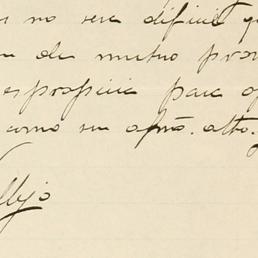 no sera dificil q
de mutuo pro
es propicia para o
como su afmo. atto.
llejo